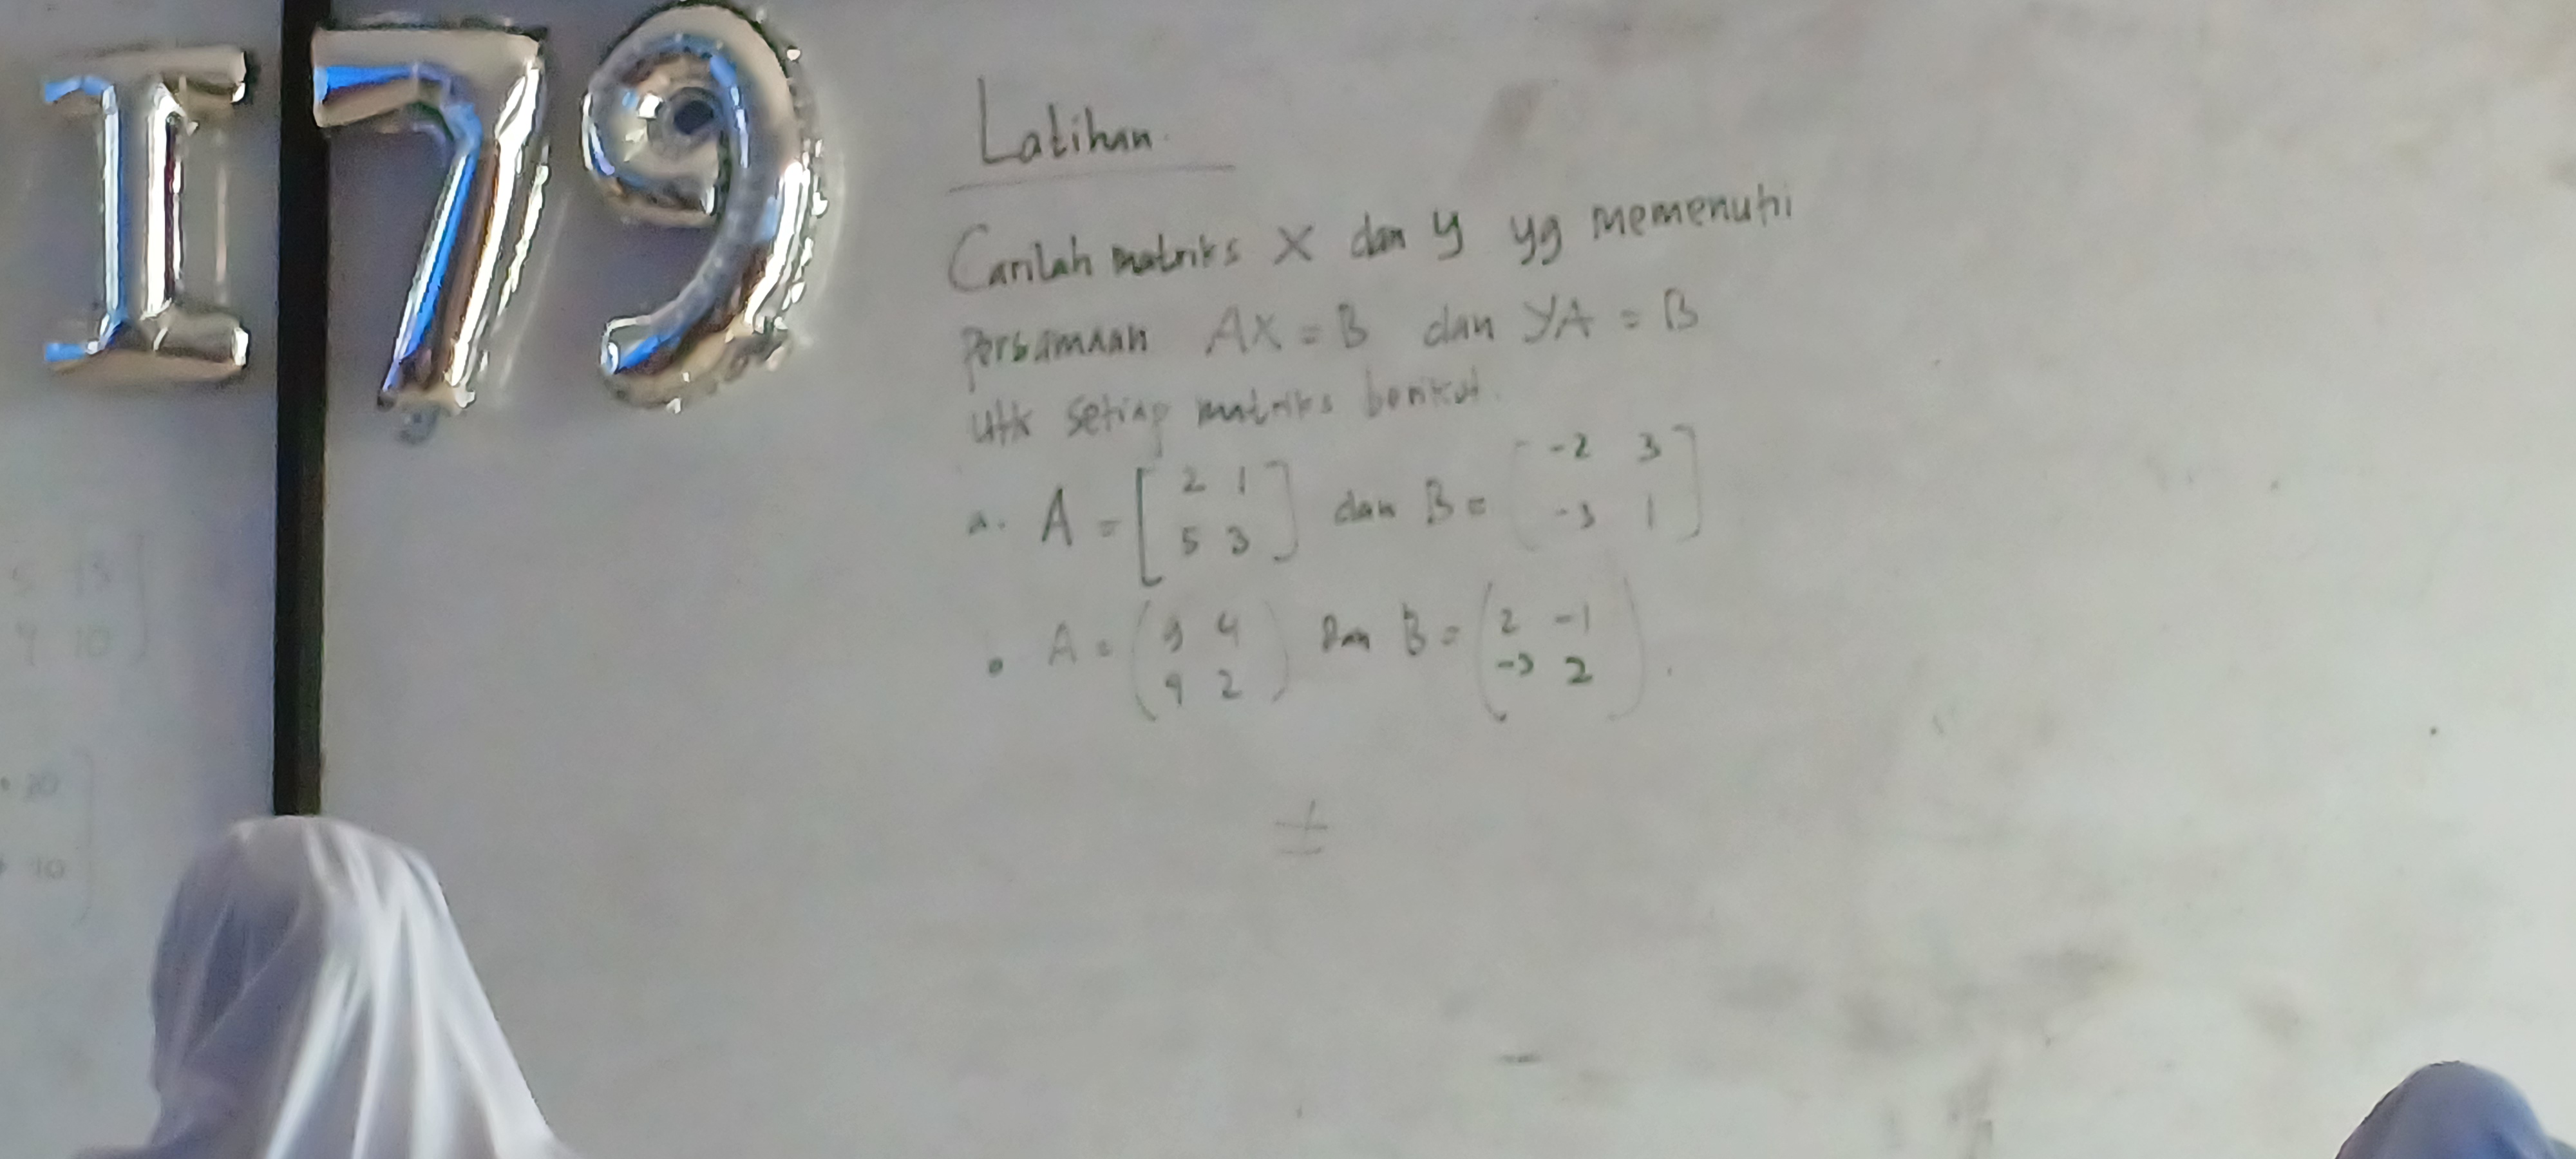 I 79
Latihan.
Carilah matriks X dan Y yg memenuhi
Persamaan AX = B dan YA = B
Utk setiap matriks berikut.
a. A = [ 2 1 ] dan B = [ -2 3 ]
5 3 -3 1
A = ( 9 4 ) Dan B = ( 2 -1 ) .
9 2 -3 2
5 15
10